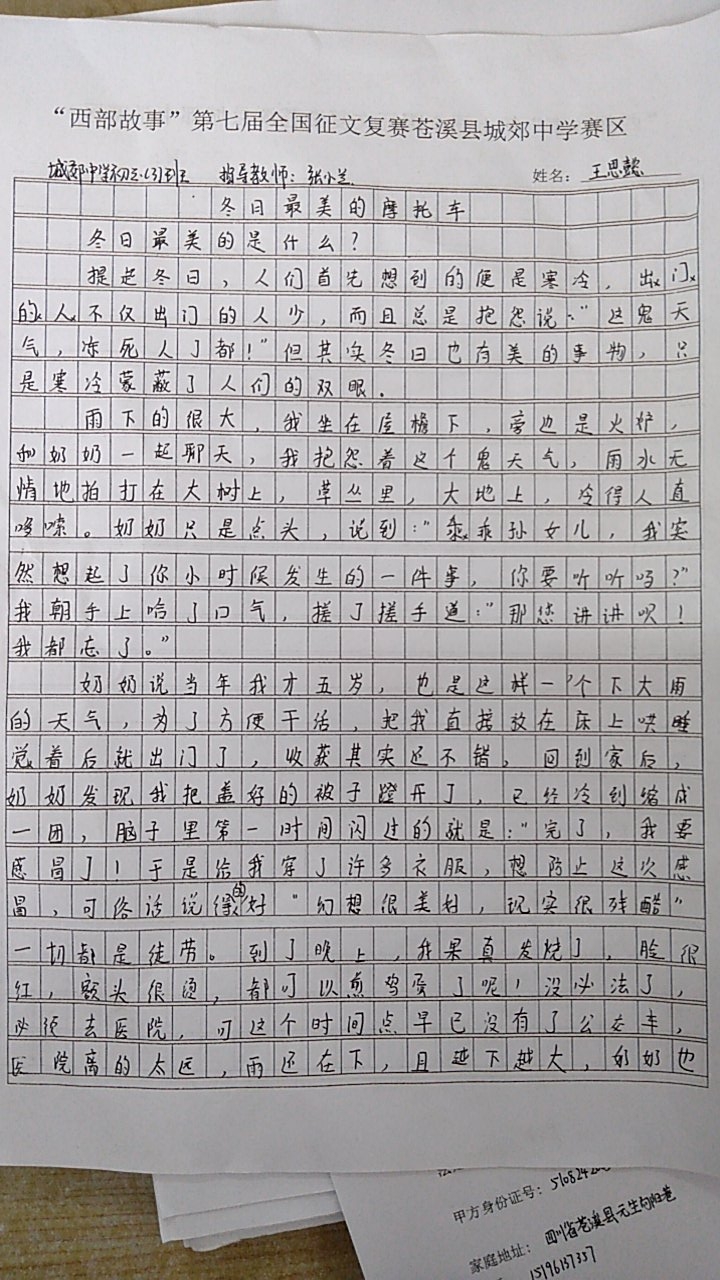 “西部故事”第七届全国征文复赛苍溪县城郊中学赛区
城郊中学初三(3)班 指导教师：张小兰 姓名：王思懿
冬日最美的摩托车
冬日最美的是什么？
提起冬日，人们首先想到的便是寒冷，出门
的人不仅出门的人少，而且总是抱怨说：“这鬼天
气，冻死人了都！”但其实冬日也有美的事物，只
是寒冷蒙蔽了人们的双眼。
雨下的很大，我坐在屋檐下，旁边是火炉，
和奶奶一起聊天，我抱怨着这个鬼天气，雨水无
情地拍打在大树上，草丛里，大地上，冷得人直
哆嗦。奶奶只是点头，说到：“乖乖孙女儿，我突
然想起了你小时候发生的一件事，你要听听吗？”
我朝手上哈了口气，搓了搓手道：“那您讲讲呗！
我都忘了。”
奶奶说当年我才五岁，也是这样一个下大雨
的天气，为了方便干活，把我直接放在床上哄睡
觉着后就出门了，收获其实还不错，回到家后，
奶奶发现我把盖好的被子蹬开了，已经冷到缩成
一团，脑子里第一时间闪过的就是：“完了，我要
感冒了！于是给我穿了许多衣服，想防止这次感
冒，可俗话说得好“幻想很美好，现实很残酷”
一切都是徒劳。到了晚上，我果真发烧了，脸很
红，额头很烫，都可以煎鸡蛋了呢！没必法了，
必须去医院，可这个时间点早已没有了公交车，
医院离的太远，雨还在下，且越下越大，奶奶也
甲方身份证号：
家庭地址：四川省苍溪县元生
15196157357